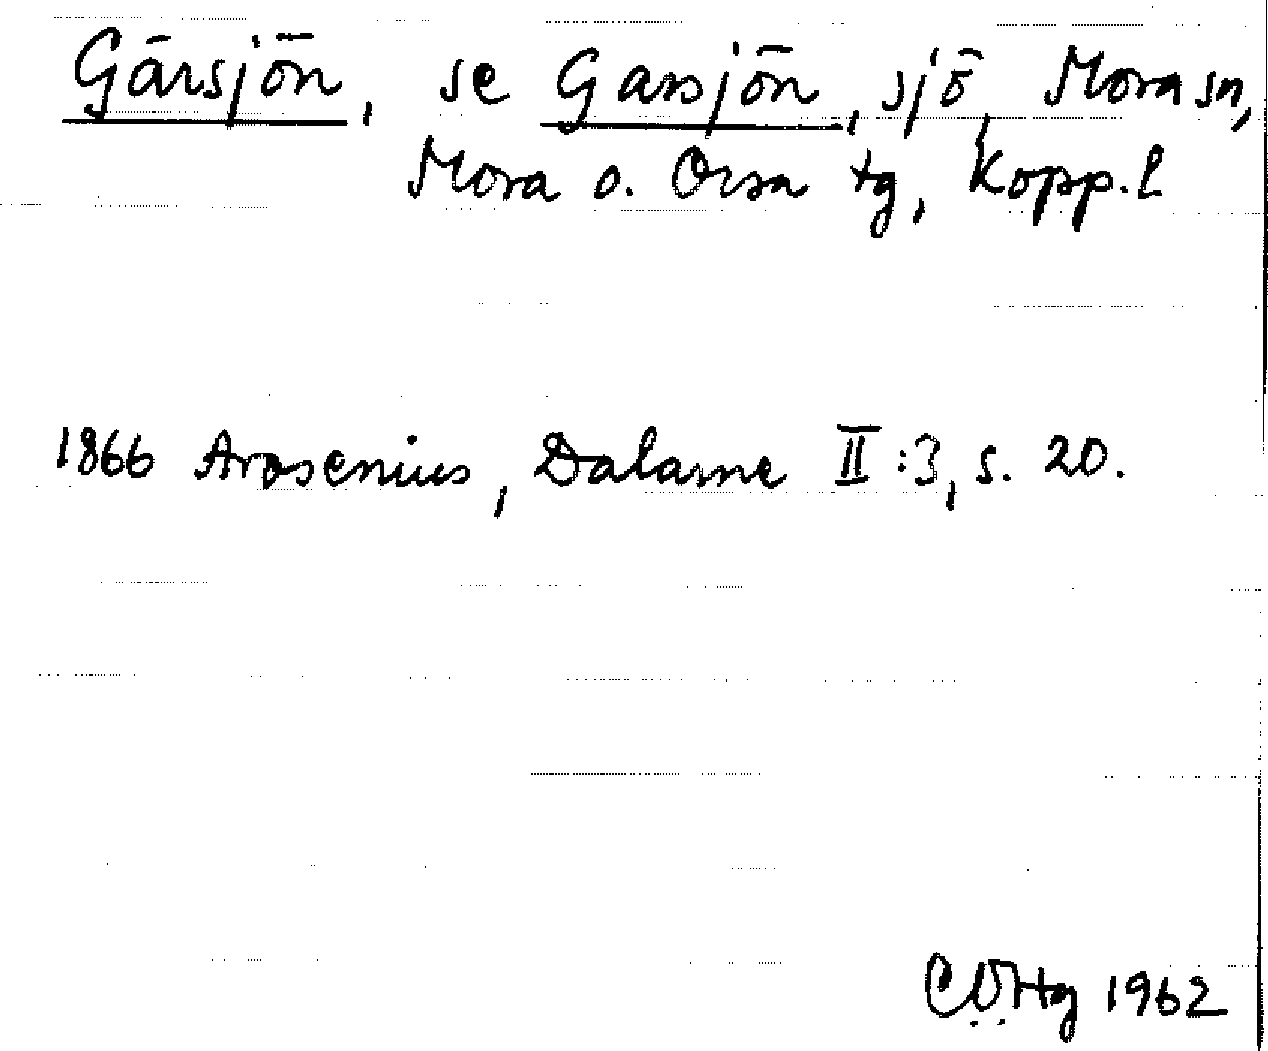 Gärsjön, se Garsjön, sjö, Mora sn,
Mora o. Orsa tg, Kopp. l.
1866 Arosenius, Dalarne II:3, s. 20.
1962